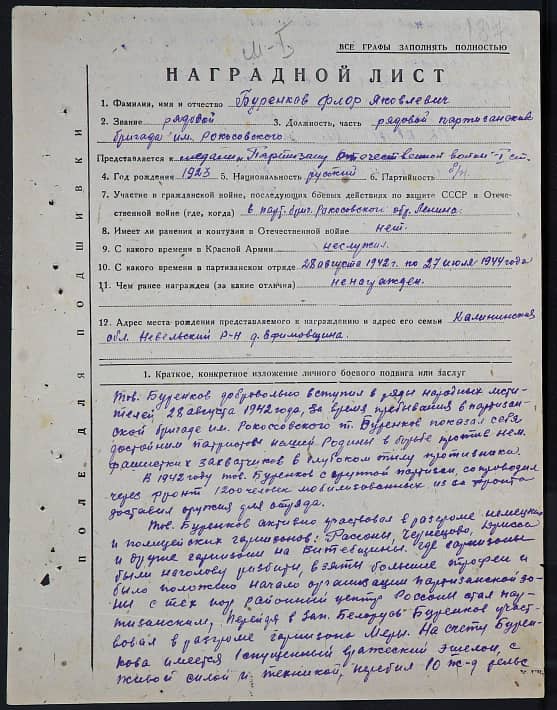 ВСЕ ГРАФЫ ЗАПОЛНЯТЬ ПОЛНОСТЬЮ
НАГРАДНОЙ ЛИСТ
1. Фамилия, имя и отчество Буренков Флор Яковлевич
2. Звание рядовой 3. Должность, часть рядовой партизанской
бригады им. Рокосовского
Представляется к медали „Партизану Отечественной войны" I ст.
4. Год рождения 1923 5. Национальность русский 6. Партийность б/п
7. Участие в гражданской войне, последующих боевых действиях по защите СССР в Отече-
ственной войне (где, когда) в парт. бриг. Рокосовского отр. Ленина
8. Имеет ли ранения и контузии в Отечественной войне нет.
9. С какого времени в Красной Армии неслужил.
10. С какого времени в партизанском отряде 28 августа 1942г. по 27 июля 1944 года
11. Чем ранее награжден (за какие отличия) ненагражден.
12. Адрес места рождения представляемого к награждению и адрес его семьи Калининская
обл. Невельский р-н д. Ефимовщина.
1. Краткое, конкретное изложение личного боевого подвига или заслуг
Тов. Буренков добровольно вступил в ряды народных мсти-
телей 28 августа 1942 года, за время пребывания в партизан-
ской бригаде им. Рокосовского т. Буренков показал себя
достойним патриотом нашей Родины в борьбе против нем.
фашистких захватчиков в глубоком тылу противника.
В 1942 году тов. Буренков с группой партизан, сопроводил
через фронт 1200 человек мобилизованных из за фронта
доставил оружия для отряда.
Тов. Буренков активно участвовал в разгроме немецких
и полицейских гарнизонов: Россоны, Чернецово, Дрисса
и другие гарнизоны на Витебщины. Где гарнизоны
были наголову разбиты, взяты большие трофеи и
было положено начало организации партизанской зо-
ны с тех пор районный центр Россоны стал пар-
тизанским, перейдя в Зап. Белорусь Буренков участ-
вовал в разгроме гарнизона Меры. На счету Бурен-
кова имеется 1 спущенный вражеский эшелон, с
живой силой и техникой, перебил 10 ж-д рельс
ПОЛЕ ДЛЯ ПОДШИВКИ